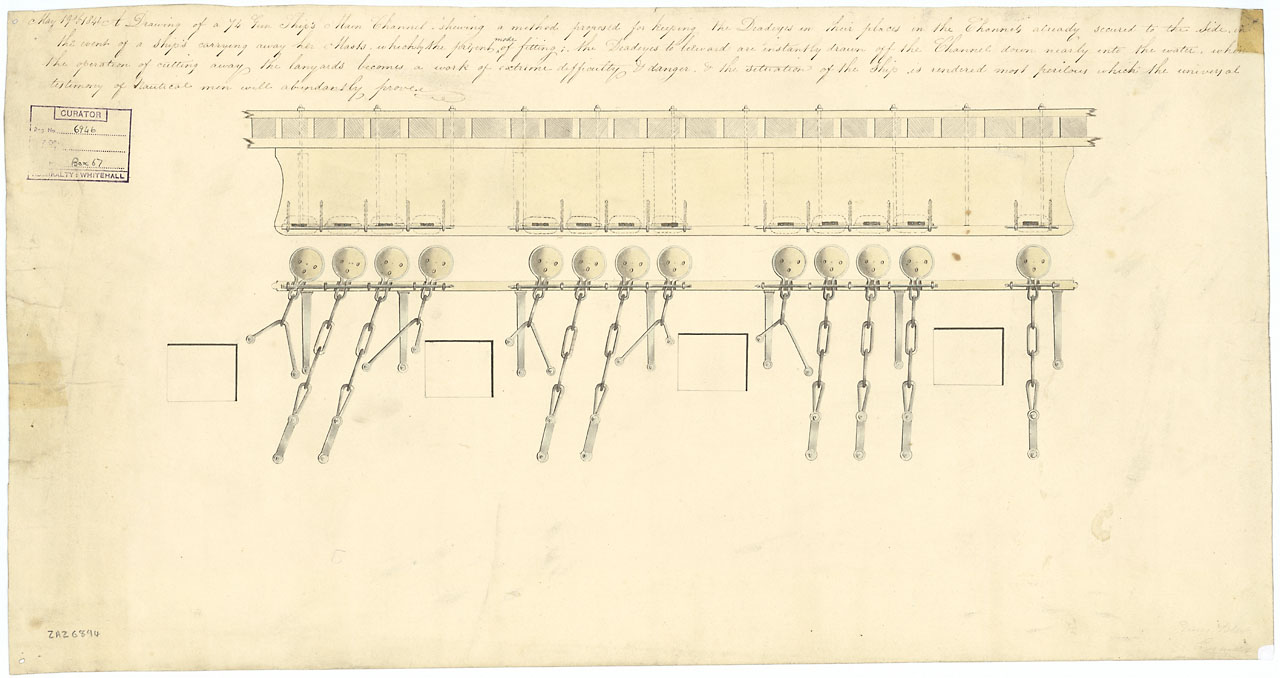 May 19th A Drawing of a 74 Gun Ship's Main Channel, shewing a method proposed for keeping the Deadeyes in their places in the Channels already secured to the Side, in
the event of a Ship's carrying away her Masts, which by the present mode of fitting, the Deadeyes to leward are instantly drawn off the Channel down nearly into the water, when
the operation of cutting away the lanyards becomes a work of extreme difficulty & danger, & the situation of the Ship is rendered most perilous which the universal
testimony of Nautical men will abundantly prove
CURATOR
Reg No 6946
Box 67
ADMIRALTY: WHITEHALL
ZAZ6894